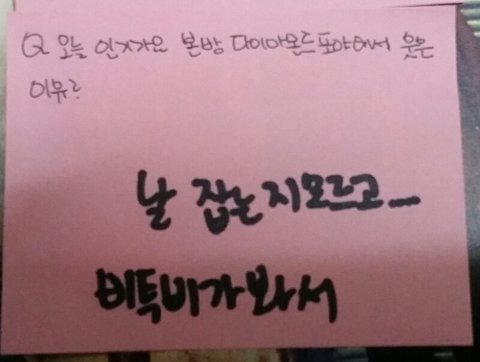 Q 오늘 인기가요 본방 다이아몬드포 야에서 웃은
이유?
날 잡는지모르고....
비투비가봐서